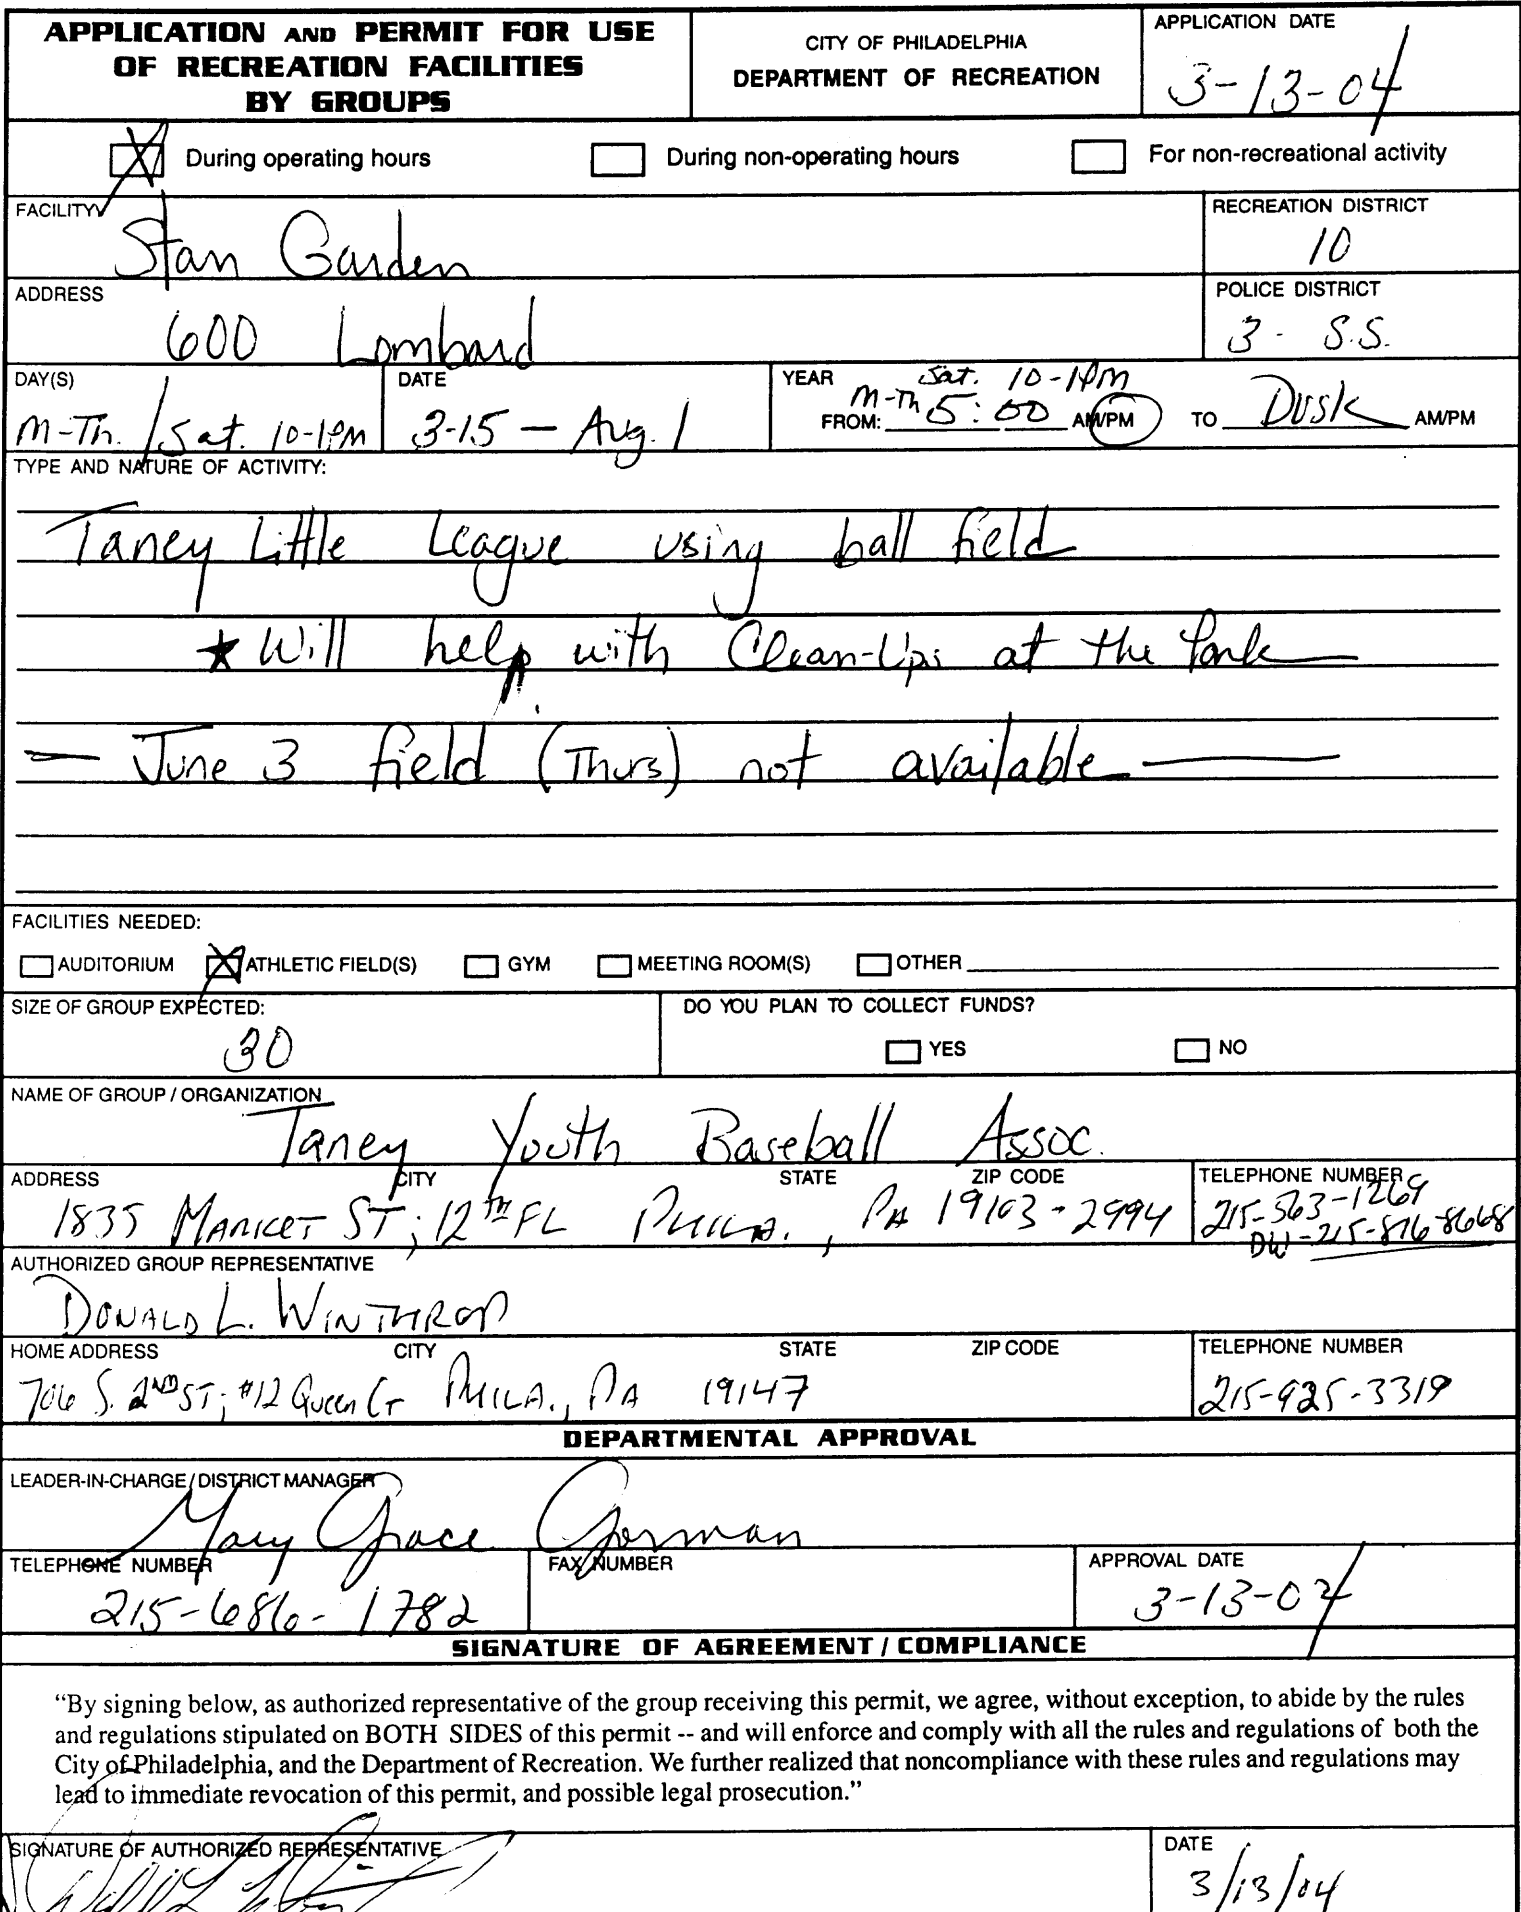 APPLICATION AND PERMIT FOR USE
OF RECREATION FACILITIES
BY GROUPS
CITY OF PHILADELPHIA
DEPARTMENT OF RECREATION
APPLICATION DATE
3-13-04
During operating hours
During non-operating hours
For non-recreational activity
FACILITY
Starr Garden
RECREATION DISTRICT
10
ADDRESS
600 Lombard
POLICE DISTRICT
3 - S.S.
DAY(S)
M-Th. / Sat. 10-1PM
DATE
3-15 — Aug. 1
YEAR
Sat. 10-1PM
M-Th
FROM: 5:00 AM/PM TO Dusk AM/PM
TYPE AND NATURE OF ACTIVITY:
Taney Little League using ball field
★ Will help with Clean-Ups at the Park
— June 3 field (Thurs) not available —
FACILITIES NEEDED:
AUDITORIUM ATHLETIC FIELD(S) GYM MEETING ROOM(S) OTHER
SIZE OF GROUP EXPECTED:
30
DO YOU PLAN TO COLLECT FUNDS?
YES NO
NAME OF GROUP / ORGANIZATION
Taney Youth Baseball Assoc.
ADDRESS CITY STATE ZIP CODE
1835 MARKET ST; 12TH FL PHILA., PA 19103-2994
TELEPHONE NUMBER
215-563-1269
DW-215-876-8668
AUTHORIZED GROUP REPRESENTATIVE
DONALD L. WINTHROP
HOME ADDRESS CITY STATE ZIP CODE
706 S. 2ND ST; #12 Queen CT PHILA., PA 19147
TELEPHONE NUMBER
215-925-3319
DEPARTMENTAL APPROVAL
LEADER-IN-CHARGE / DISTRICT MANAGER
Mary Grace Gorman
TELEPHONE NUMBER
215-686-1782
FAX NUMBER
APPROVAL DATE
3-13-04
SIGNATURE OF AGREEMENT / COMPLIANCE
“By signing below, as authorized representative of the group receiving this permit, we agree, without exception, to abide by the rules
and regulations stipulated on BOTH SIDES of this permit -- and will enforce and comply with all the rules and regulations of both the
City of Philadelphia, and the Department of Recreation. We further realized that noncompliance with these rules and regulations may
lead to immediate revocation of this permit, and possible legal prosecution.”
SIGNATURE OF AUTHORIZED REPRESENTATIVE
DATE
3/13/04